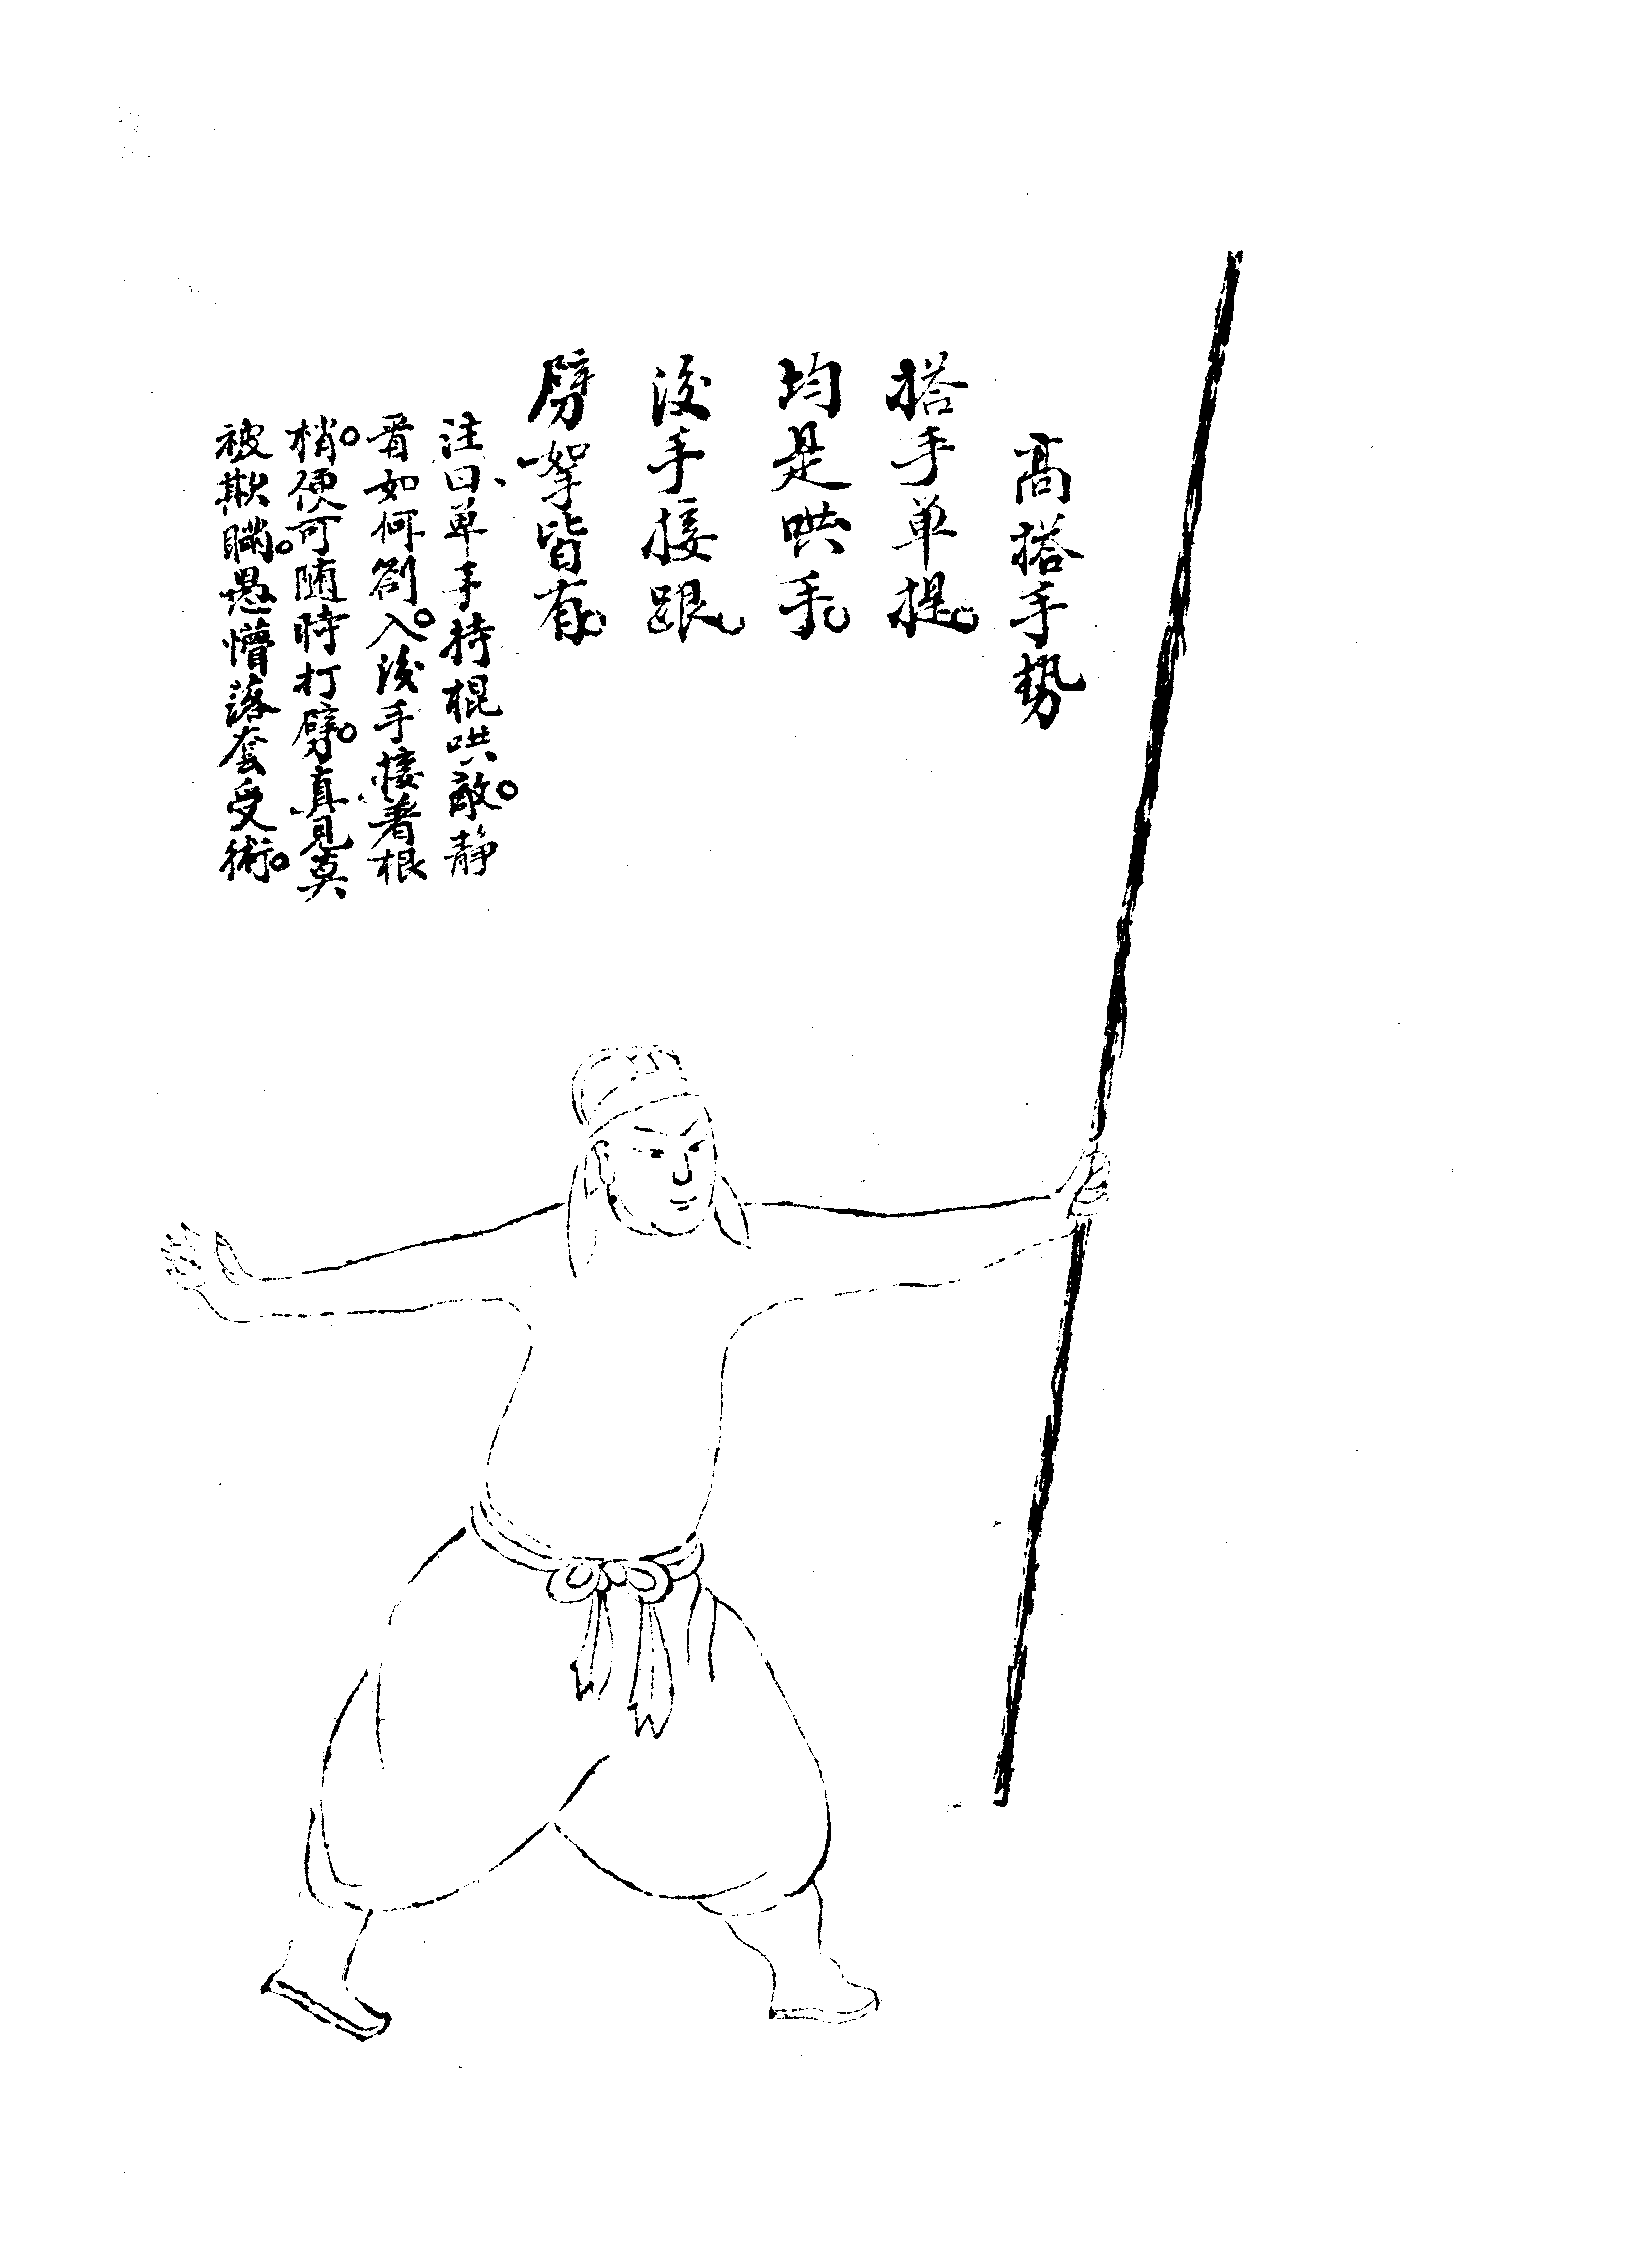 高搭手势
搭手单提。
均是哄手。
後手接跟。
劈拏皆有。
注曰、单手持棍哄敵。静
看如何劄入。後手接着根
梢。便可随時打劈。真見莫
被欺瞞。愚懵落套受術。